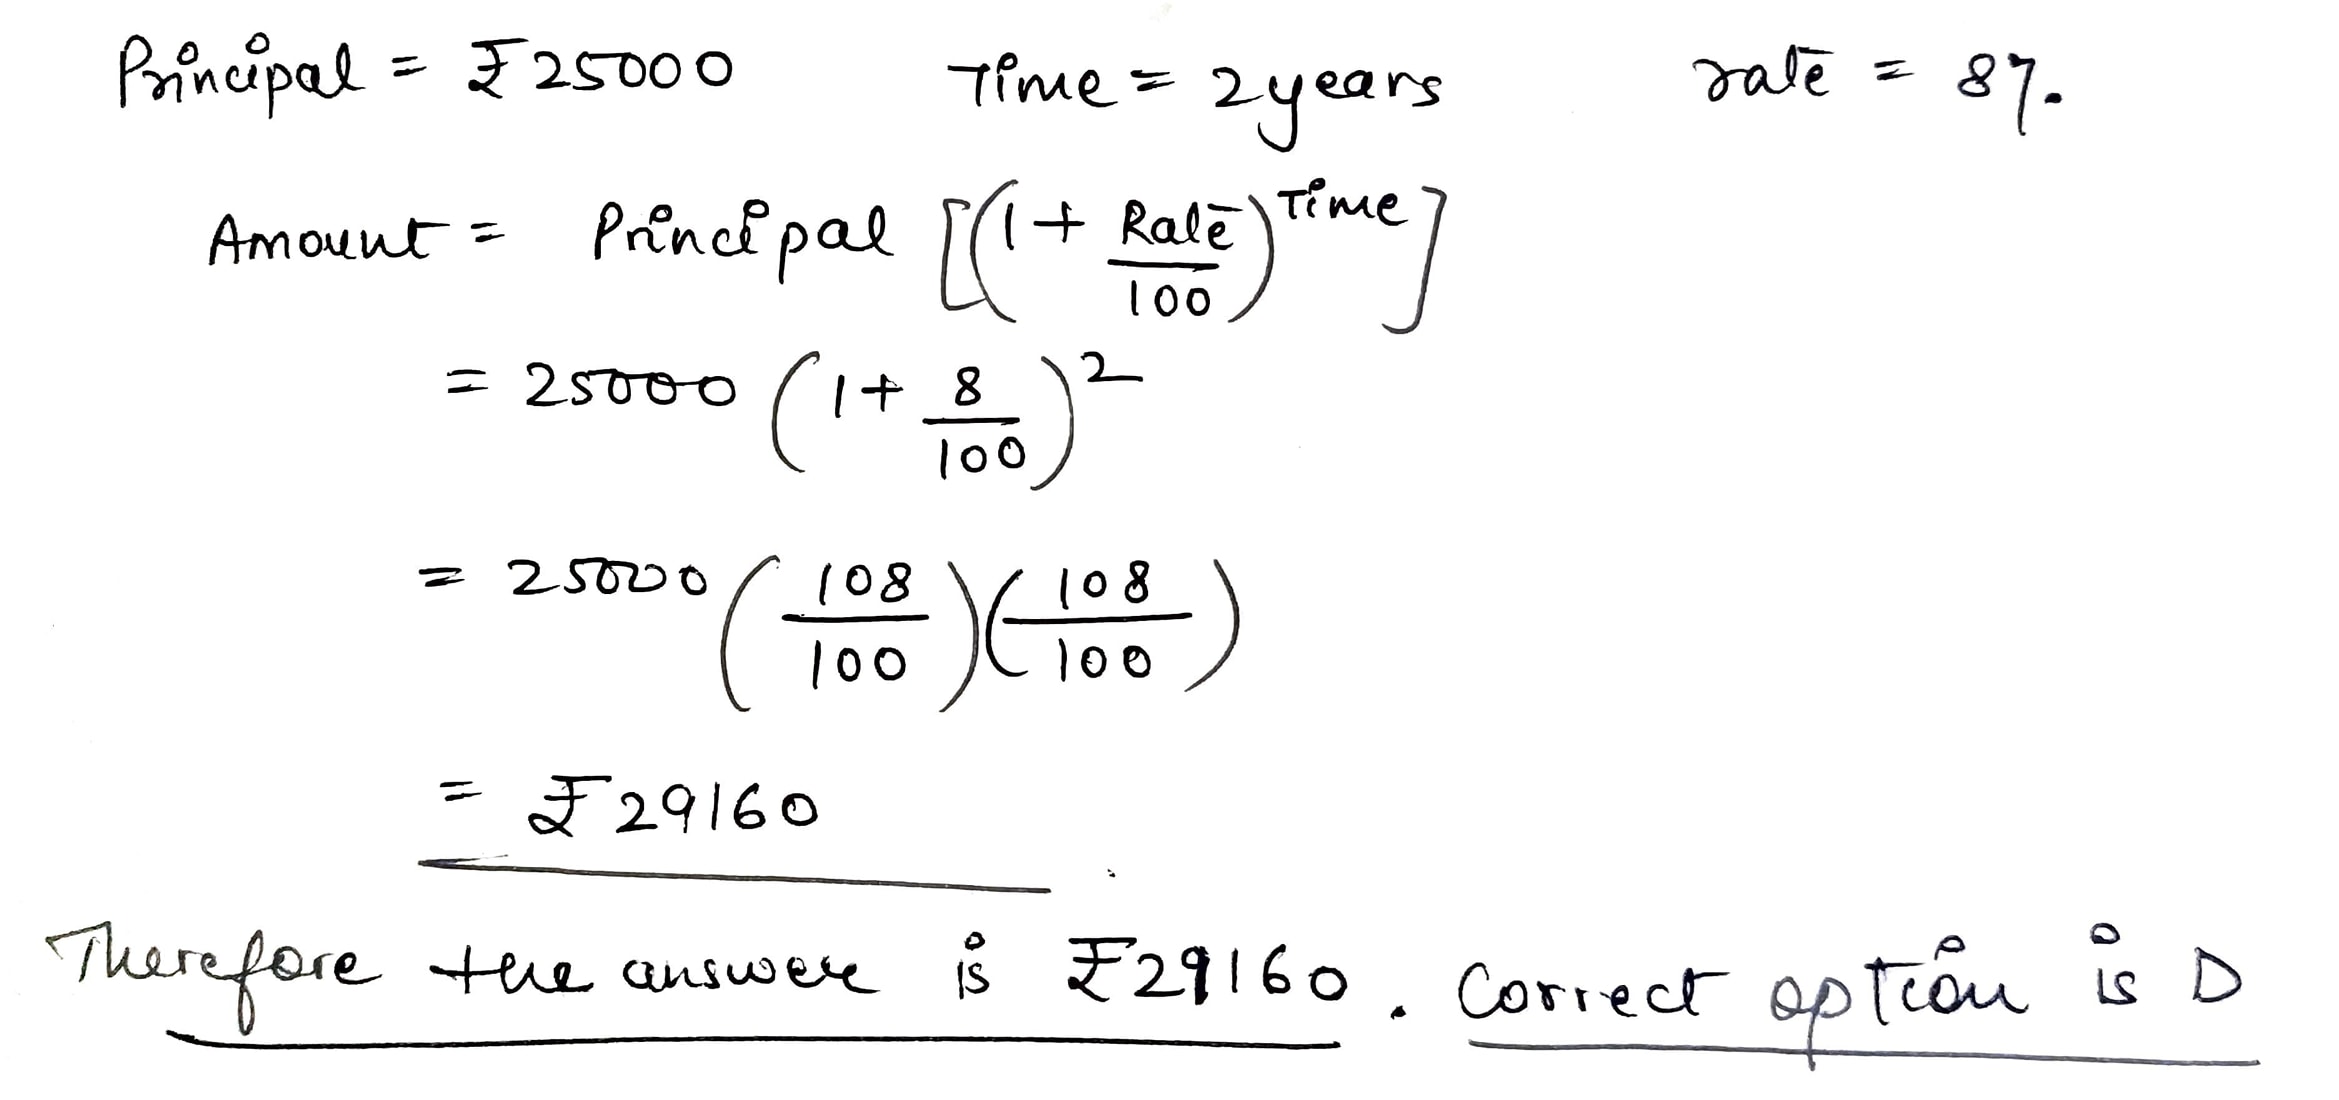 Principal = ₹25000 Time = 2years rate = 8%.
Amount = Principal [(1 + Rate/100)^Time]
= 25000 (1 + 8/100)^2
= 25000 (108/100)(108/100)
= ₹29160
Therefore the answer is ₹29160. Correct option is D